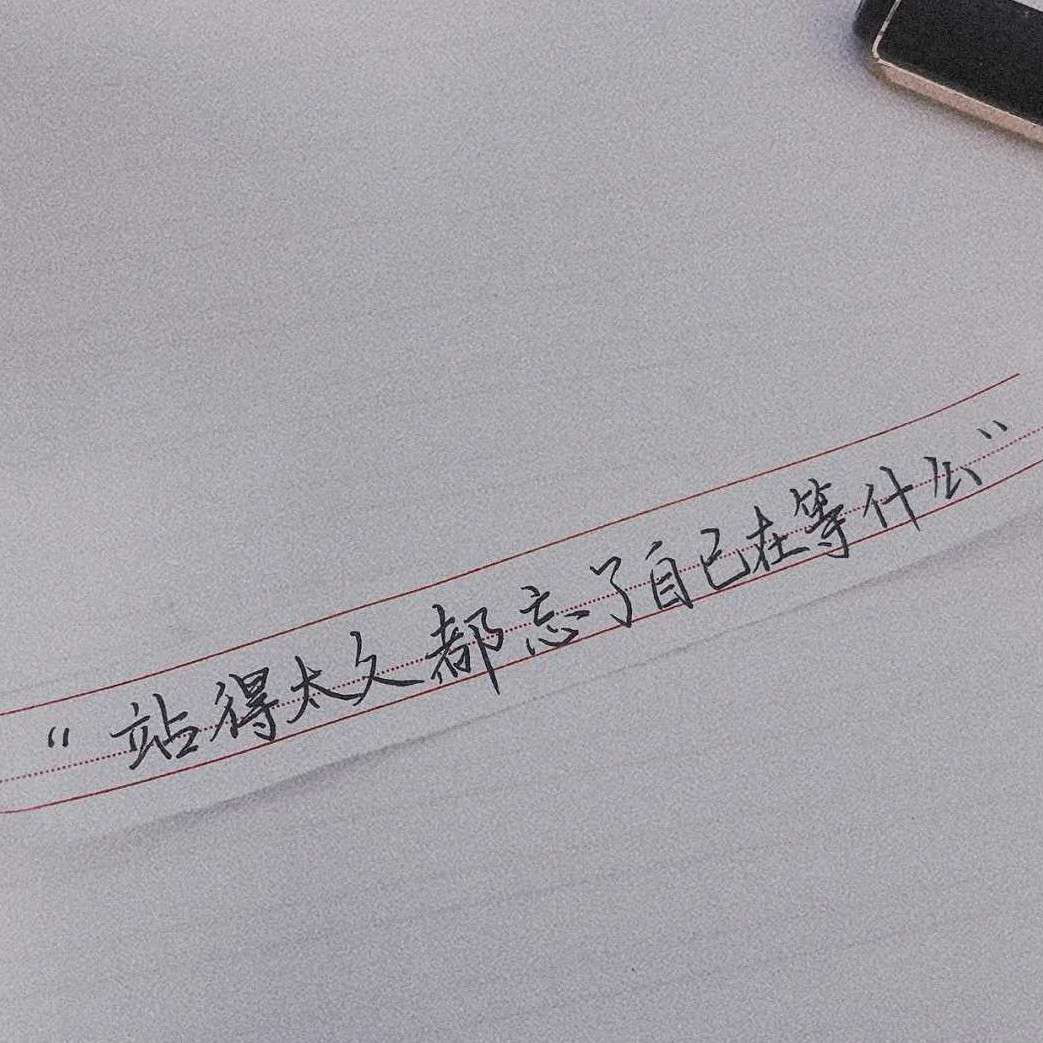 “站得太久都忘了自己在等什么”